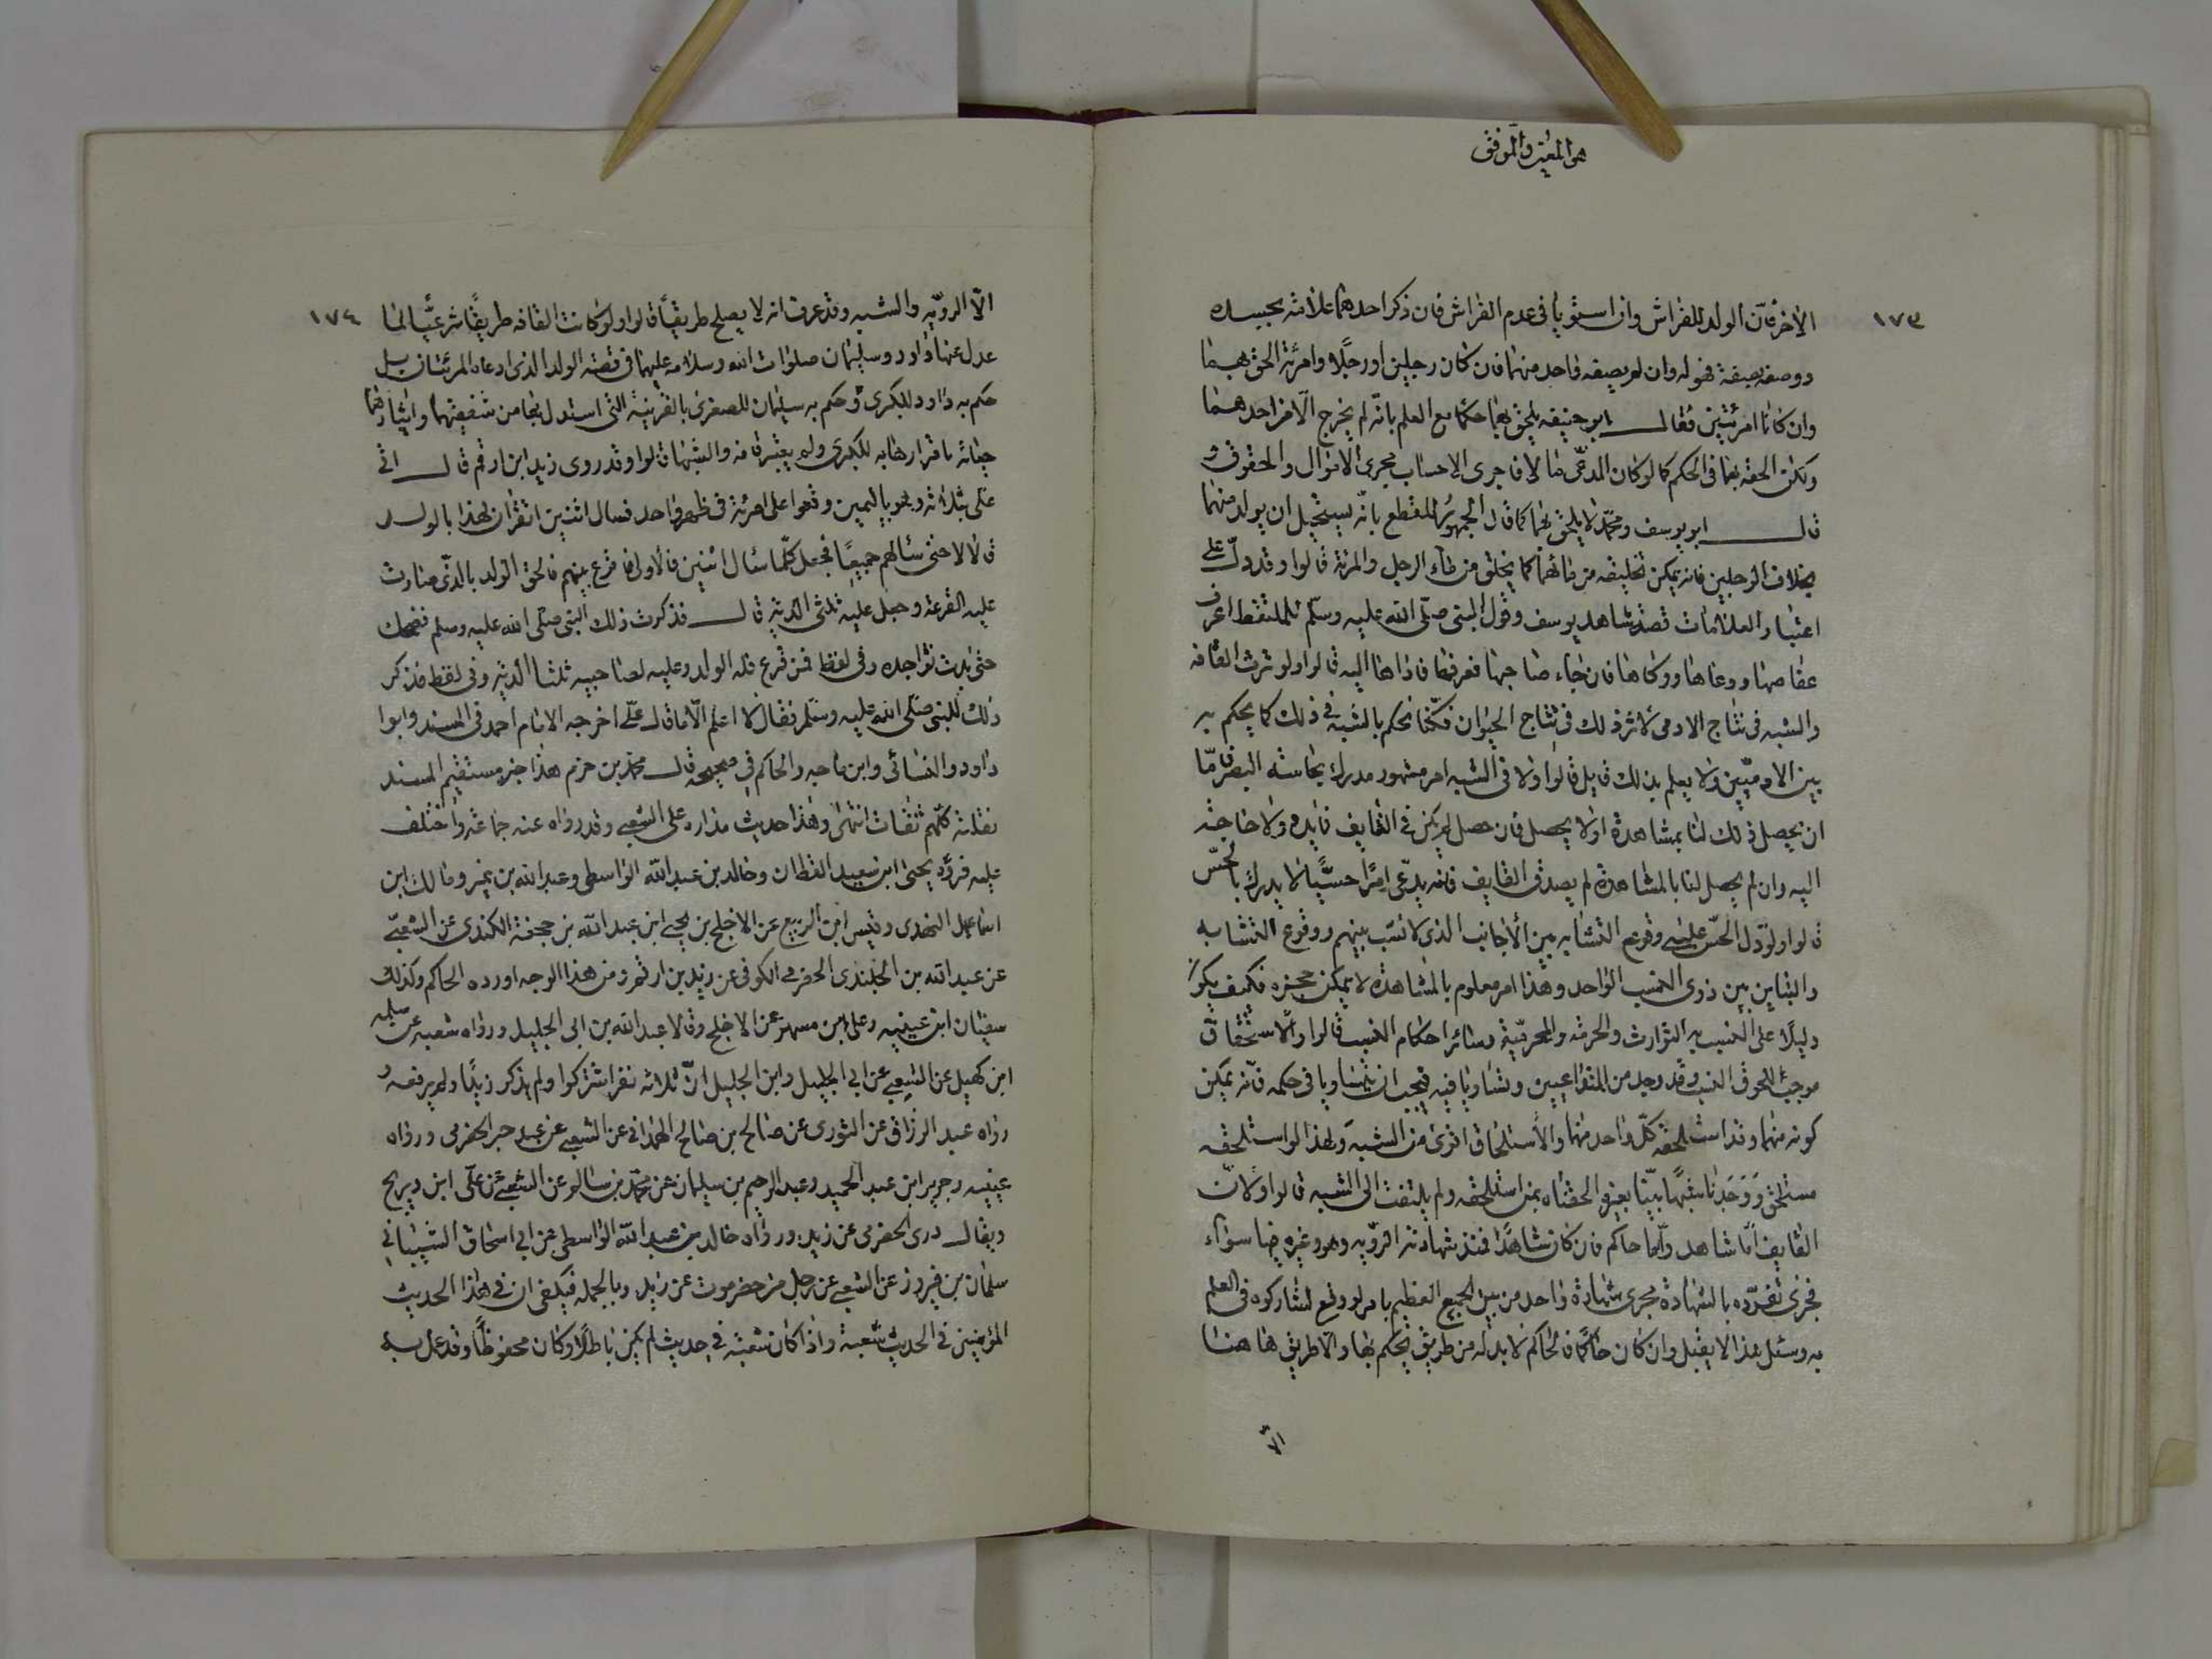 هو المعين والموفق
١٧٣
الاخر فان الولد للفراش وان استويا في عدم الفراش فان ذكر احدهما علامة بجسده
ووصفه بصفة فهو له وان لم يصفه واحد منهما فان كان رجلين او رجلا وامرئة الحق بهما
وان كانا امرئتين فقال ابو حنيفه يلحق بهما حكما مع العلم بانه لم يخرج الا من احدهما
ولكن الحقه بهما في الحكم كما لو كان المدعى مالا فاجرى الاحساب مجرى الاموال والحقوق و
قال ابو يوسف ومحمد لا يلحق بهما كما قال الجمهور للقطع بانه يستحيل ان يولد منهما
بخلاف الرجلين فانه يمكن تخليقه من مائهما كما يخلق من ماء الرجل والمرئة قالوا وقد دل على
اعتبار العلامات قصة شاهد يوسف وقول النبي صلى الله عليه وسلم للملتقط اعرف
عفاصها ووعاها ووكاها فان جاء صاحبها فعرفها فاداها اليه قالوا ولو اثرت القافه
والشبه في نتاج الادمى لاثر ذلك في نتاج الحيوان فكنا نحكم بالشبه في ذلك كما يحكم به
بين الادميين ولا يعلم بذلك قايل قالوا ولان الشبه امر مشهور مدرك بحاسة البصر فامّا
ان يحصل ذلك لنا بمشاهدة او لا يحصل فان حصل لم يكن في القايف فايده ولا حاجة
اليه وان لم يحصل لنا بالمشاهدة لم يصدق القايف فانه يدعى امرًا حسيًّا لا يدرك بالحسّ
قالوا ولو دل الحسّ على وقوع التشابه بين الأجانب الذى لا نسب بينهم ووقوع التشابه
والتباين بين ذوى النسب الواحد وهذا امر معلوم بالمشاهدة لا يمكن جحده فكيف يكون
دليلًا على النسب به التوارث والحرمة والمحرميّة وسائر احكام النسب قالوا والاستحقاق
موجب للحوق النسب وقد وجد من المتداعيين وتساويا فيه فيجب ان يتساويا في حكمه فانه يمكن
كونه منهما وقد استلحقه كلّ واحد منهما والأستلحاق اقوى من الشبه ولهذا لو استلحقه
مستلحق ووجدنا شبهًا بيّنًا بغيره الحقناه بمن استلحقه ولم يلتفت الى الشبه قالوا ولان
القايف امّا شاهد وامّا حاكم فان كان شاهدًا فمستند شهادته الرؤيه وهو وغيره فيها سواء
فجرى تفرده بالشهادة مجرى شهادة واحد من بين الجمع العظيم بامر لو وقع لشاركوه في العلم
به ومثل هذا لا يقبل وان كان حاكمًا فالحاكم لا بد له من طريق يحكم بها ولا طريق هاهنا
الّا
١٧٤
الّا الرؤيه والشبه وقد عرف انه لا يصلح طريقًا قالوا ولو كانت القافه طريقًا شرعيًّا لما
عدل عنها داود وسليمان صلوات الله وسلامه عليهما في قصة الولد الذى ادعاه المرئتان بل
حكم به داود للكبرى وحكم به سليمان للصغرى بالقرينة التى استدل بها من شفقتها وايثارها
حياته باقرارها به للكبرى ولم يعتبر قافه والشبها قالوا وقد روى زيد ابن ارقم قال اتى
على بثلاثه وهو باليمين وقعوا على امرئة في طهر واحد فسال اثنين اتقران لهذا بالولد
قالا لا حتى سئالهم جميعًا فجعل كلّما سئال اثنين قالا لا فاقرع بينهم فالحق الولد بالذى صارت
عليه القرعة وجعل عليه ثلثى الدية قال فذكرت ذلك النبى صلى الله عليه وسلم فضحك
حتى بدت نواجده وفى لفظ فمن قرع فله الولد وعليه لصاحبيه ثلثا الدية وفى لفظ فذكر
ذلك للنبى صلى الله عليه وسلم فقال لا اعلم الّا ما قال على اخرجه الامام احمد فى المسند وابوا
داود والنسائى وابن ماجه والحاكم في صحيحه قال محمد بن حزم هذا خبر مستقيم السند
نقلته كلهم ثقات انتهى وهذا حديث مداره على الشعبى وقد رواه عنه جماعة واختلف
عليه فروّه يحيى ابن سعيد القطان وخالد بن عبد الله الواسطى وعبد الله بن نمير ومالك ابن
اسماعيل النهدى وقيس ابن الربيع عن الاجلح بن يحيى ابن عبد الله بن حجفة الكندى عن الشعبىّ
عن عبد الله بن الخلندى الحضرمى الكوفى عن زيد بن ارقم ومن هذا الوجه اورده الحاكم وكذلك
سفيان ابن عيينه وعلى ابن مسهر عن الاجلح وقالا عبد الله بن ابى الجليل ورواه شعبه عن سلمه
ابن كهيل عن الشعبى عن ابى الجليل وابن الجليل انّ ثلاثه نفر اشتركوا ولم يذكر زيدًا ولم يرفعه و
رواه عبد الرزاق عن الثورى عن صالح بن صالح الهمدانى عن الشعبى عن عبد خير الحضرمى ورواه
عيينه وجرير ابن عبد الحميد وعبد الرحيم بن سليمان عن محمّد بن سالم عن الشعبى عن علّى ابن ذريح
ويقال درى الحضرمى عن زيد ورواه خالد بن عبد الله الواسطى عن ابى اسحاق الشيبانى
سلمان بن فيروز عن الشعبى عن رجل من حضرموت عن زيد وبالجمله فيكفى ان في هذا الحديث
المؤمنين في الحديث شعبة واذا كان شعبة في حديث لم يكن باطلًا وكان محفوظًا وقد عمل به